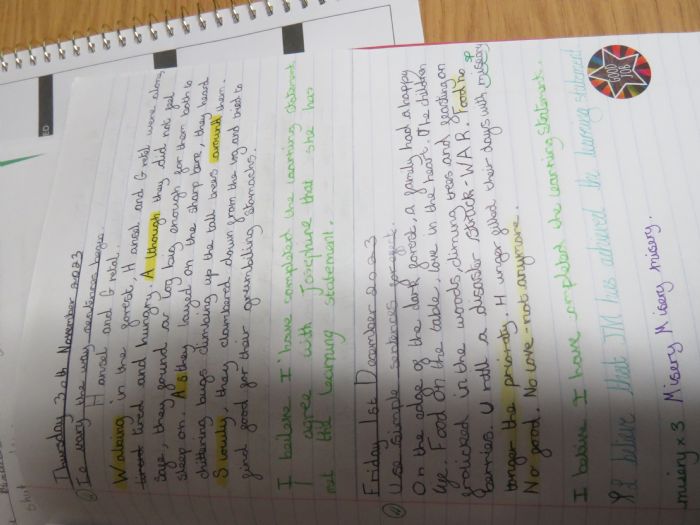 Thursday 30th November 2023
To vary the way sentences begin.
Hansel and Gretel.
Walking in the forest, Hansel and Gretel were alone,
tired and hungry. Although they did not feel
safe, they found a log big enough for them both to
sleep on. As they layed on the sharp bare, they heard
chittering bugs climbing up the tall trees around them.
Slowly, they clambered down from the log and tried to
find good for their grumbling stomachs.
I believe I have completed the learning statement
I agree with Josephine that she has
met the learning statement.
Friday 1st December 2023
Use simple sentences for effect.
On the edge of the dark forest, a family had a happy
life. Food on the table, love in the heart. The children
frolicked in the woods, climing trees and feasting on
berries. Until a disaster struck - WAR. Food no sp
longer the priority. Hunger filled their days with miseary
No good. No love - not anymore.
I believe I have completed the learning statement.
I believe that JM has achieved the learning statement
misiry x 3 Misery Misery misery.
GOOD JOB